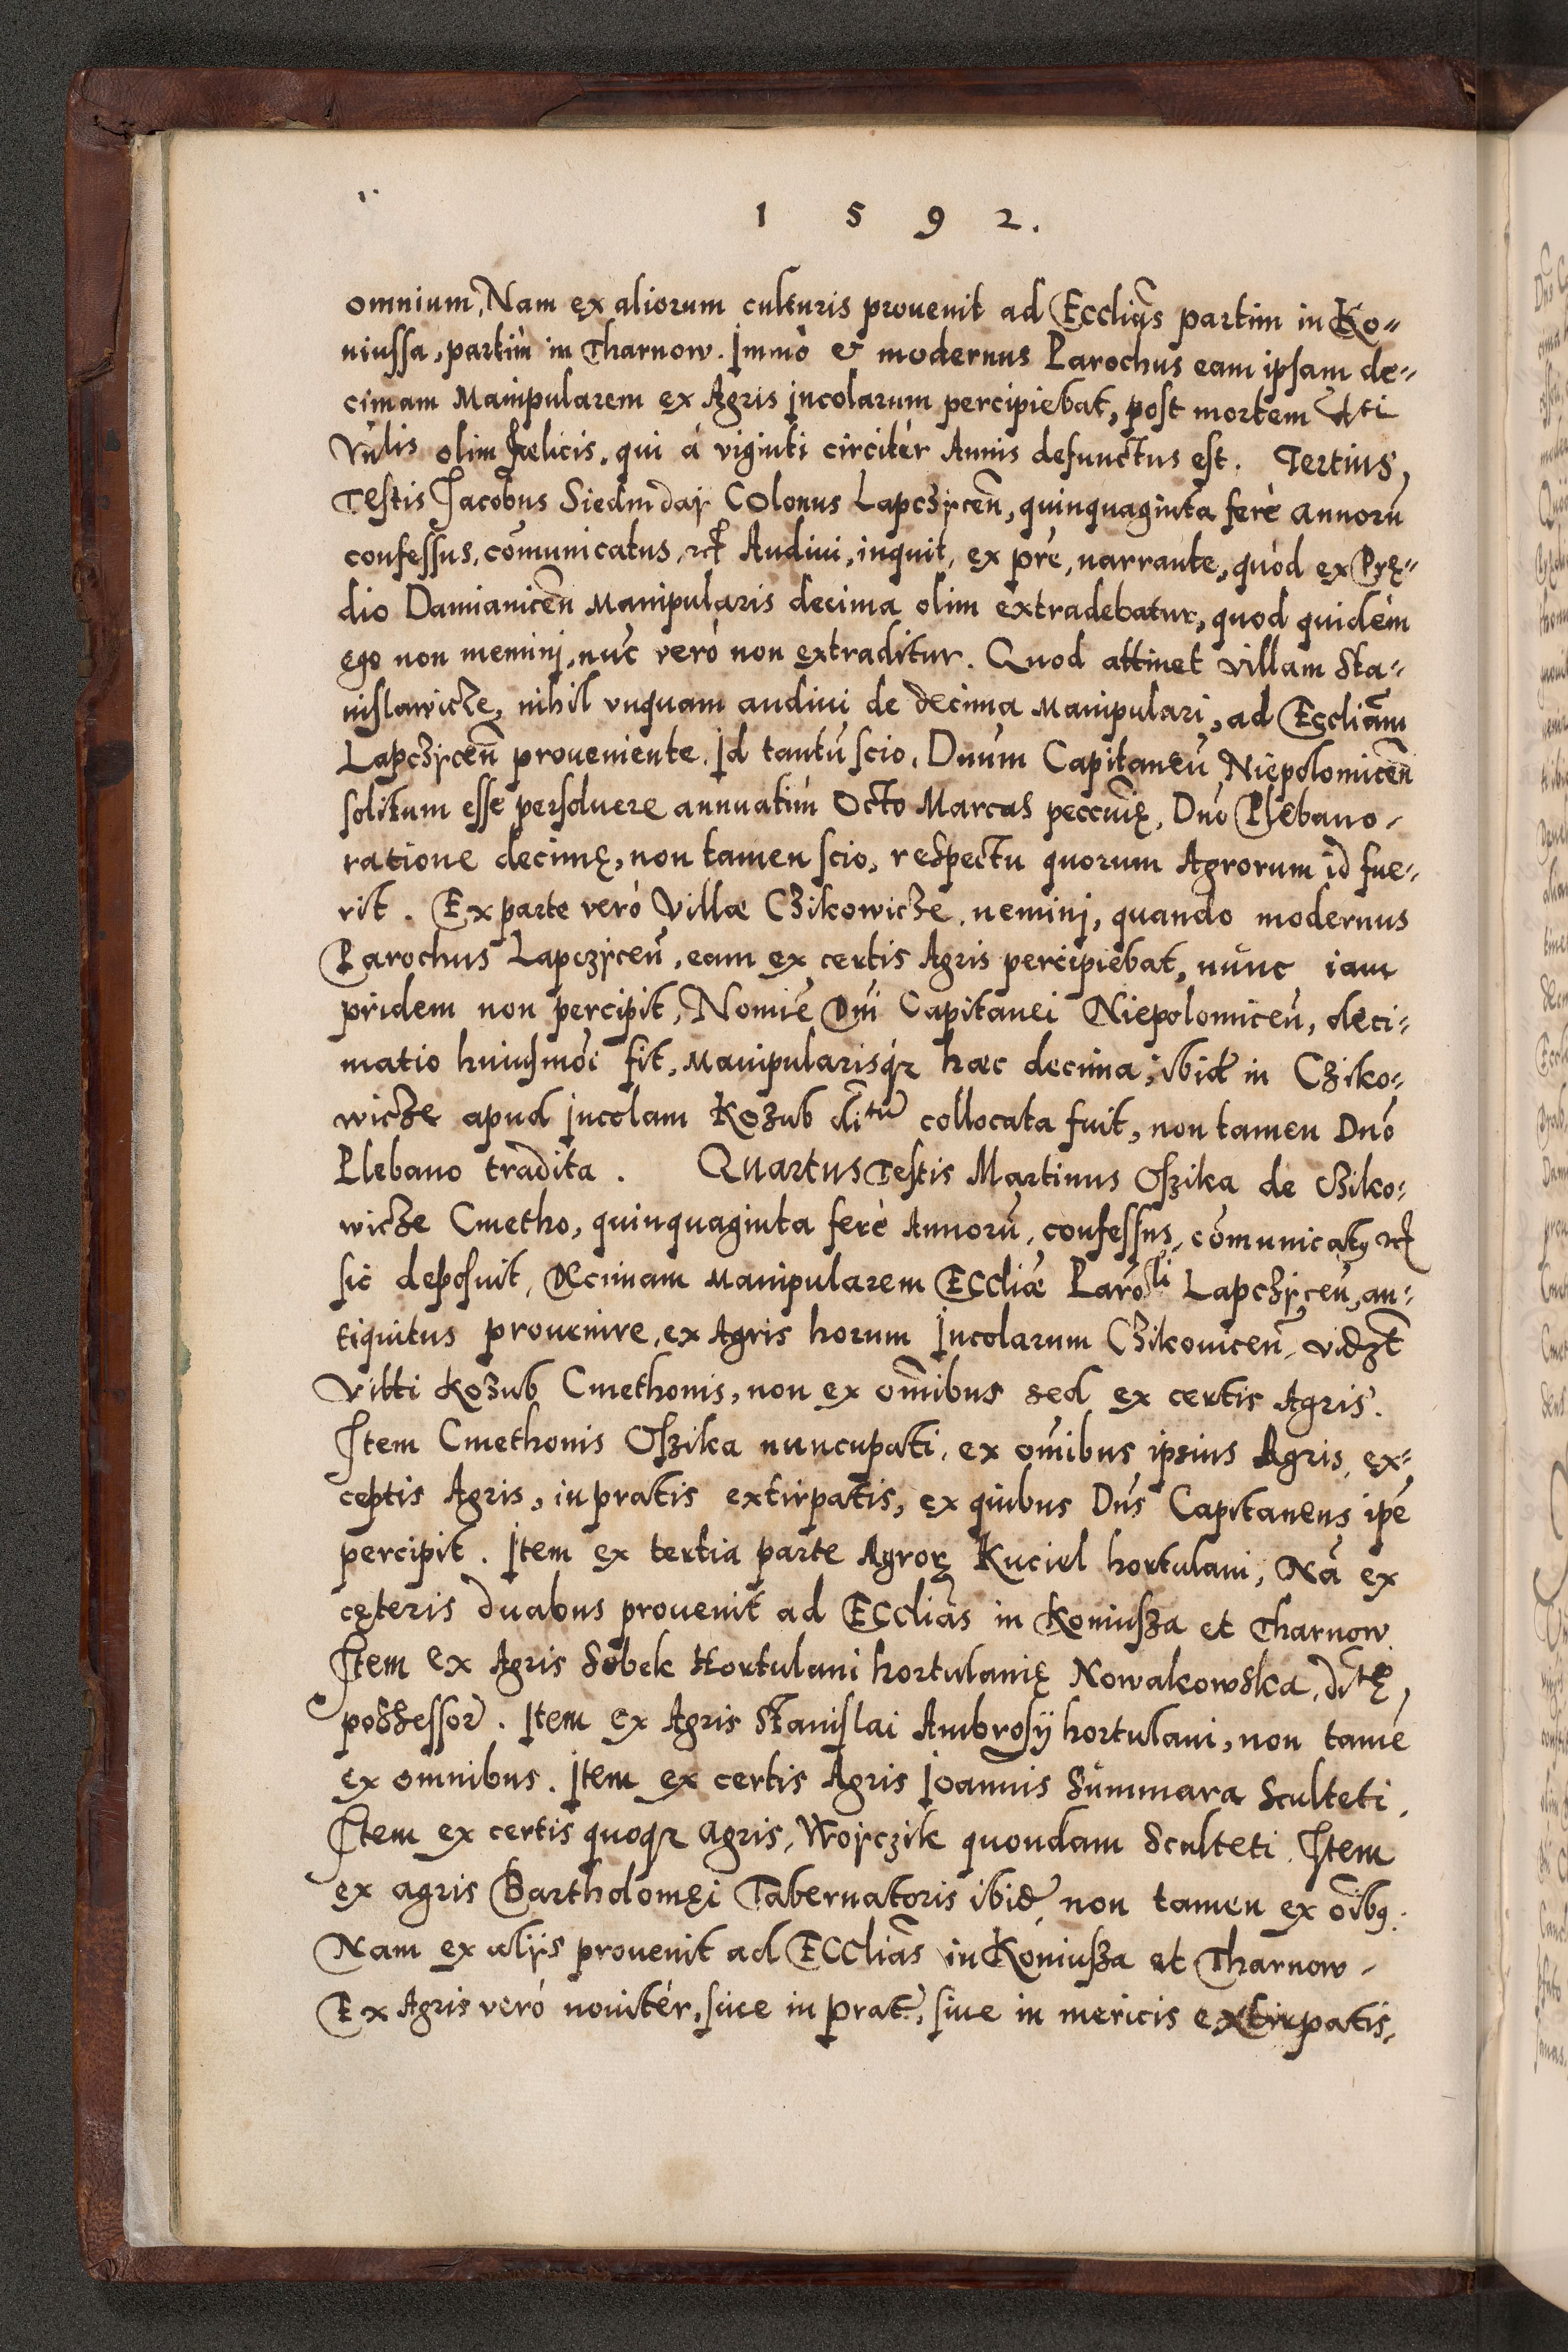 1592.
omnium, Nam ex aliorum culturis prouenit ad Ecclias partim in Ko-
niussa, partim in Tharnow. Immò et modernus Parochus eam ipsam de-
cimam Manipularem ex Agris incolarum percipiebat, post mortem
olim Felicis, qui à viginti circitèr Annis defunctus est. Tertius,
Testis Jacobus Siedmdaÿ Colonus Lapczÿceñ, quinquaginta ferè annorū
confessus, comunicatus, etc Audiui, inquit, ex pre, narrante, quòd ex Prę-
dio Damianiceñ Manipularis decima olim extradebatur, quod quidèm
ego non memini, nuc verò non extraditur. Quod attinet villam Sta-
nislawicze, nihil vnquam audiui de decima Manipulari, ad Eccliam
Lapczÿceñ proueniente. Id tantū scio, Dnum Capitaneū Niepolomiceñ
solitum esse persoluere annuatim Octo Marcas peccunię, Dno Plebano
ratione decimę, non tamen scio, respectu quorum Agrorum id fue-
rit. Ex parte verò Villæ Czikowicze, memini, quando modernus
Parochus Lapczÿceñ, eam ex certis Agris percipiebat, nunc iam
pridem non percipit, Nomīe Dni Capitanei Niepolomiceñ, deci-
matio huiusmōi fit, Manipularisq3 haec decima, ibidē in Cziko-
wicze apud incolam Kozub collocata fuit, non tamen Dno
Plebano tradita. Quartus Testis Martinus Oszika de Cziko-
wicze Cmetho, quinquaginta ferè Annorū, confessus, comunicatus etc
sic deposuit, Decimam Manipularem Eccliæ Paroli Lapczÿceñ, an-
tiquitus prouenire, ex Agris horum Incolarum Czikouiceñ, vidzt
Vitti Kozub Cmethonis, non ex omibus sed ex certis Agris.
Item Cmethonis Oszika nuncupati, ex omibus ipsius Agris, ex-
ceptis Agris, in pratis extirpatis, ex quibus Dns Capitaneus ipe
percipit. Item ex tertia parte Agrorę Kuciel hortulani, Nā ex
cęteris duabus prouenit ad Ecclias in Koniusza et Tharnow.
Item ex Agris Sobek Hortulani hortulanię Nowakowska, ditę,
possessor. Item ex Agris Stanislai Ambrosÿ hortulani, non tamē
ex omnibus. Item ex certis Agris Ioannis Summara Sculteti.
Item ex certis quoq3 agris, Woÿczik quondam Sculteti. Item
ex agris Bartholomęi Tabernatoris ibidē non tamen ex oibus.
Nam ex alÿs prouenit ad Ecclias in Koniusza et Tharnow.
Ex Agris verò nouitèr, siue in prat, siue in mericis extirpatis,